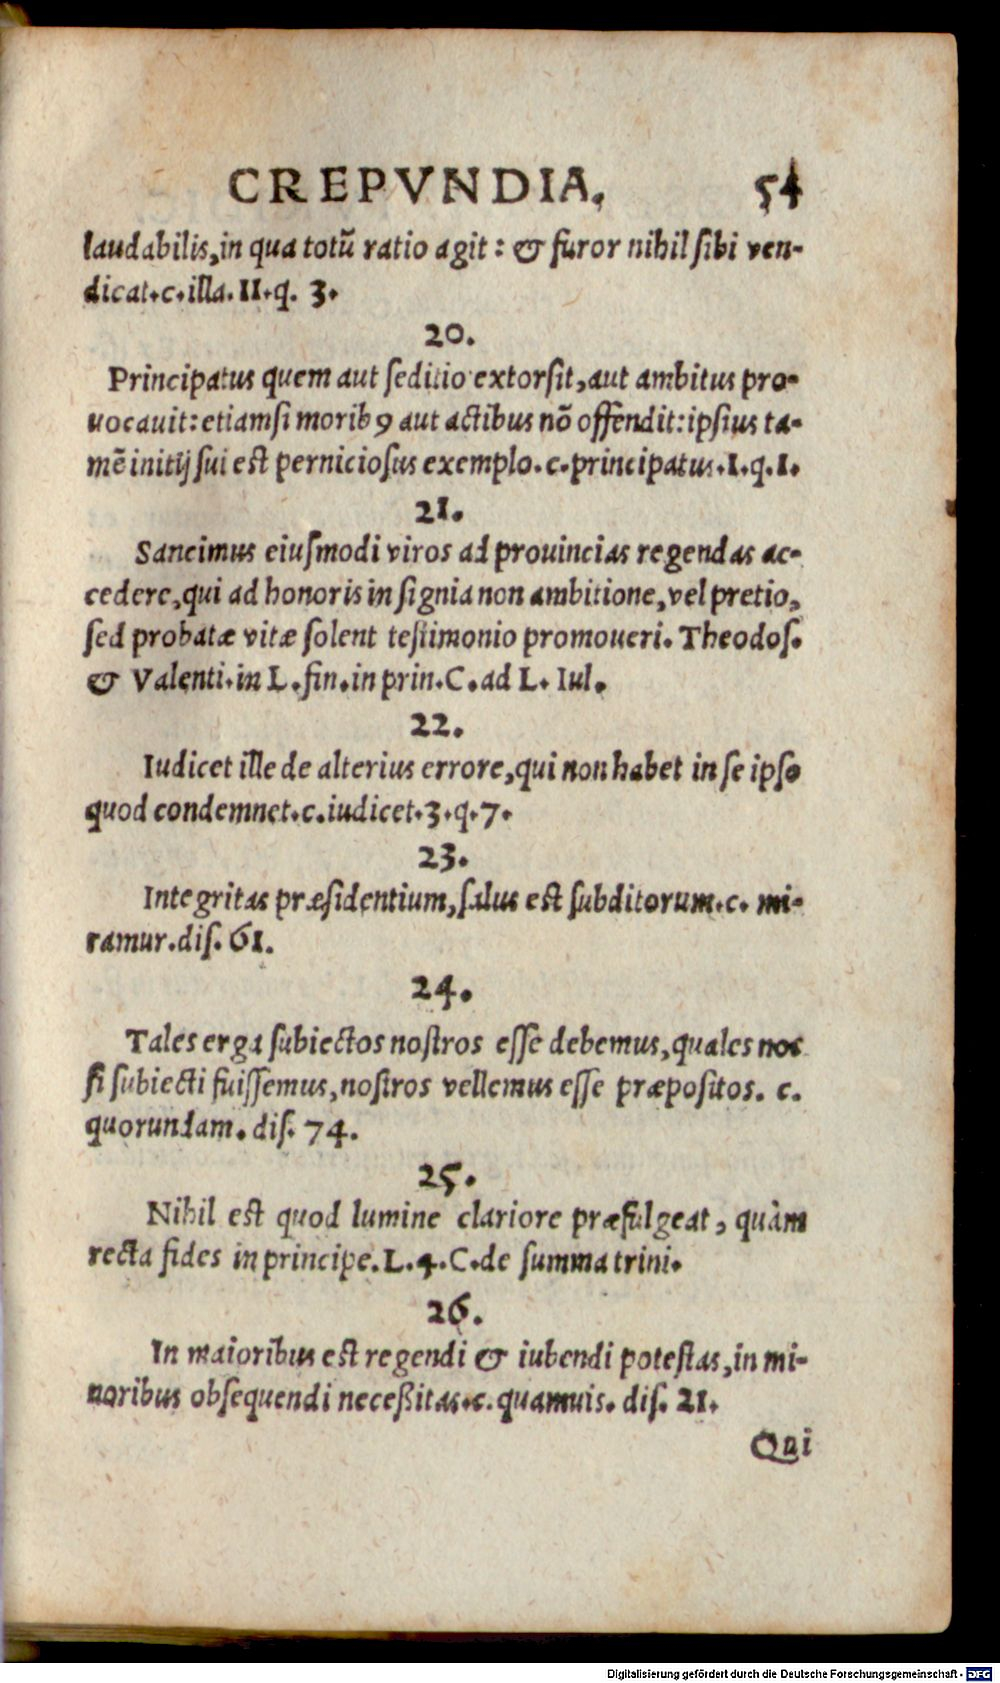 CREPVNDIA. 54
laudabilis, in qua totũ ratio agit: & furor nihil sibi ven-
dicat. c. illa. II. q. 3.
20.
Principatus quem aut seditio extorsit, aut ambitus pro-
vocavit: etiamsi moribꝰ aut actibus nõ offendit: ipsius ta-
mẽ initij sui est perniciosus exemplo. c. principatus. I. q. I.
21.
Sancimus eiusmodi viros ad prouincias regendas ac-
cedere, qui ad honoris insignia non ambitione, vel pretio,
sed probatæ vitæ solent testimonio promoueri. Theodos.
& Valenti. in L. fin. in prin. C. ad L. Iul.
22.
Iudicet ille de alterius errore, qui non habet in se ipso
quod condemnet. c. iudicet. 3. q. 7.
23.
Integritas præsidentium, salus est subditorum. c. mi-
ramur. dis. 61.
24.
Tales erga subiectos nostros esse debemus, quales nos
si subiecti fuissemus, nostros vellemus esse præpositos. c.
quorundam. dis. 74.
25.
Nihil est quod lumine clariore præfulgeat, quàm
recta fides in principe. L. 4. C. de summa trini.
26.
In maioribus est regendi & iubendi potestas, in mi-
noribus obsequendi neceßitas. c. quamuis. dis. 21.
Qui
Digitalisierung gefördert durch die Deutsche Forschungsgemeinschaft - DFG